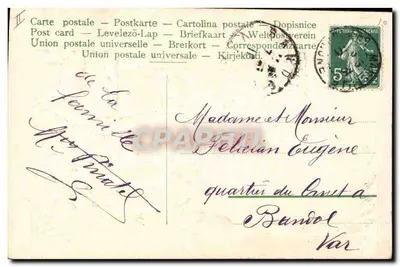 II
Carte postale - Postkarte - Cartolina postale - Dopisnice
Post card - Levelező-Lap - Briefkaart - Weltpostverein
Union postale universelle - Brefkort - Correspondenzkarte
Union postale universale - Kirjekod
5
de la
famille
Madame et Monsieur
Félicien Eugène
quartier du
à
Bandol
Var